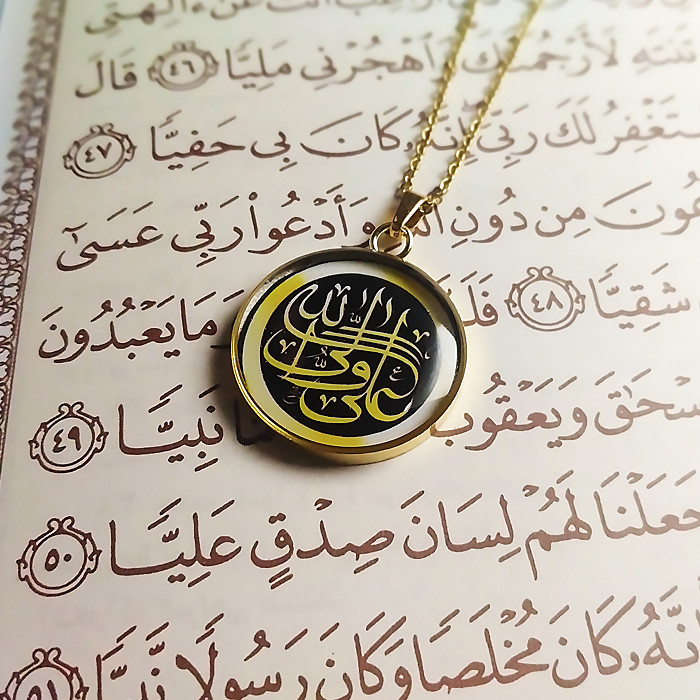 أَنتَ عَنْ ءَالِهَتِى
تَنتَهِ لَأَرْجُمَنَّكَ وَٱهْجُرْنِى مَلِيًّا ٤٦ قَالَ
سْتَغْفِرُ لَكَ رَبِّىٓ إِنَّهُۥ كَانَ بِى حَفِيًّا ٤٧
عُونَ مِن دُونِ وَأَدْعُوا۟ رَبِّى عَسَىٰٓ
شَقِيًّا ٤٨ وَمَا يَعْبُدُونَ
سْحَٰقَ وَيَعْقُوبَ نَبِيًّا ٤٩
جَعَلْنَا لَهُمْ لِسَانَ صِدْقٍ عَلِيًّا ٥٠
نَّهُۥ كَانَ مُخْلَصًا وَكَانَ رَسُولًا نَّبِيًّا ٥١
علي ولي الله